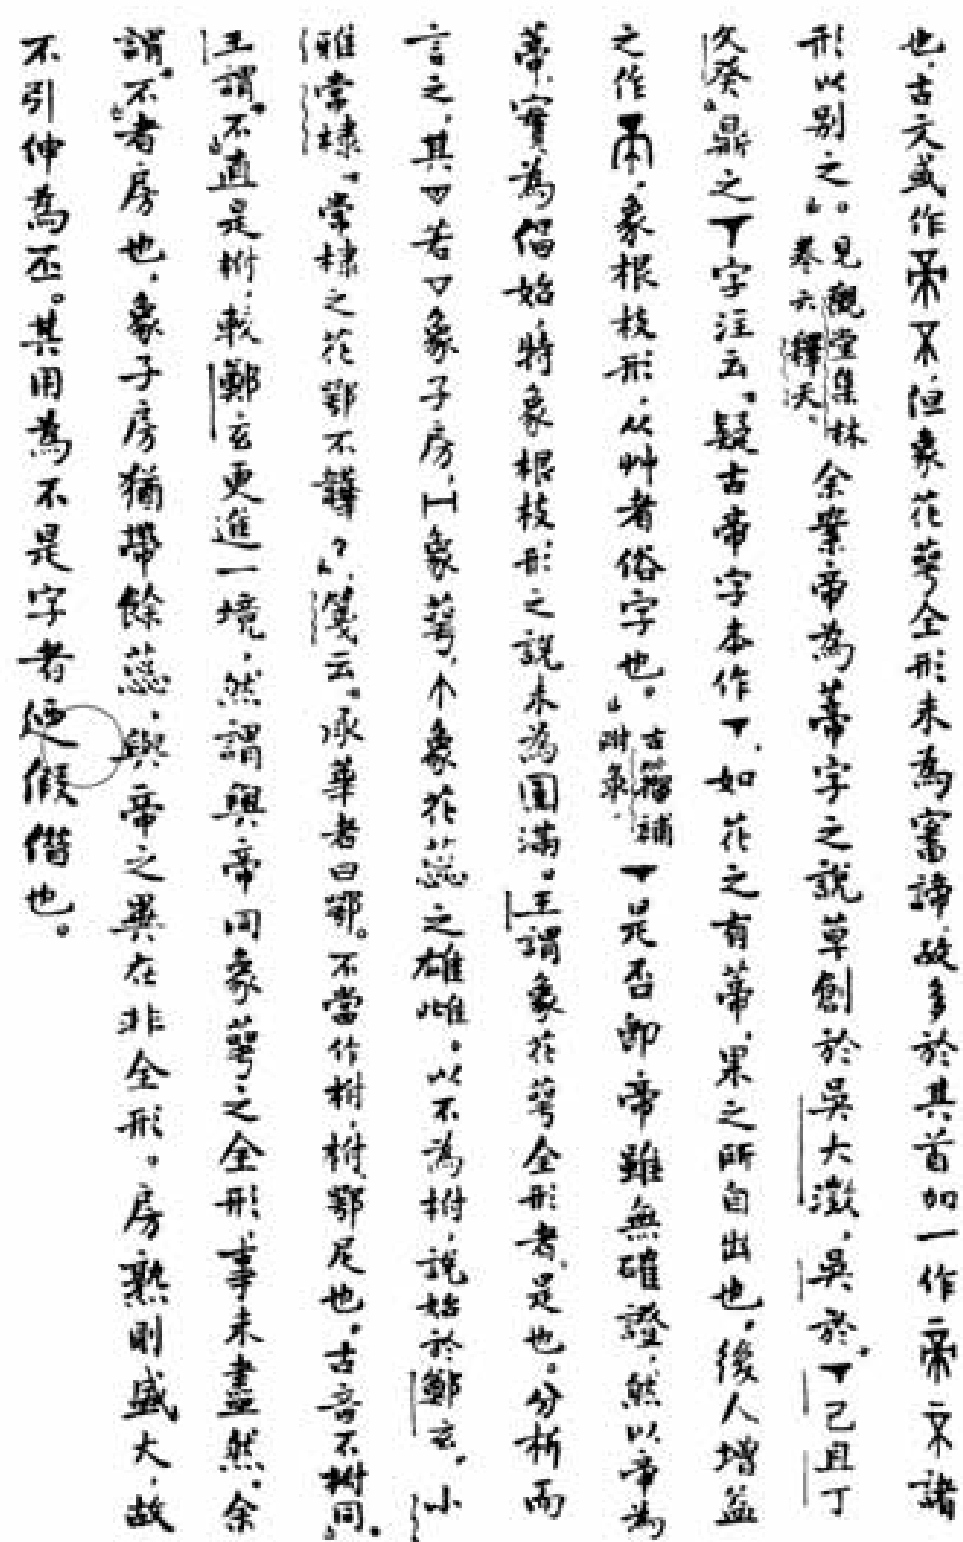 也，古文或作帝不，但象花萼全形，未為審諦，故多於其首加一作帝不諸
形以別之。」見觀堂集林卷六釋天。余案帝為蔕字之說草創於吳大澂，吳於「▼己且丁
父癸」鼎之▼字注云。「疑古帝字本作▼，如花之有蔕，果之所自出也。後人增益
之作帝，象根枝形，从艸者俗字也。」古籀補附錄。▼是否即帝雖無確證，然以帝為
蔕，實為倡始，特象根枝形之說未為圓滿。王謂象花萼全形者，是也。分析而
言之，其▽若▽象子房，工象萼，个象花蕊之雄雌。以不為柎，說始於鄭玄。小
雅常棣「常棣之花鄂不韡韡」，箋云。「承華者曰鄂。不當作柎，柎，鄂足也。古音不柎同。」
王謂「不」直是柎，較鄭玄更進一境，然謂與帝同象萼之全形，事未盡然。余
謂「不」者房也，象子房猶帶餘蕊，與帝之異在非全形。房熟則盛大，故
不引伸為丕。其用為不是字者乃假借也。